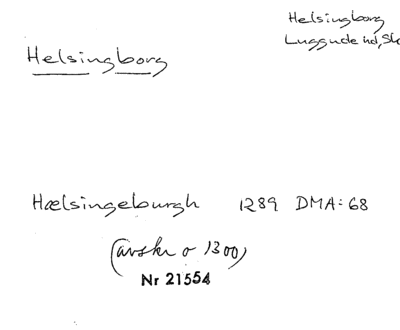 Helsingborg
Luggude hd, Sk
Helsingborg
Hælsingeburgh 1289 DMA: 68
(avskr o 1300)
Nr 21554